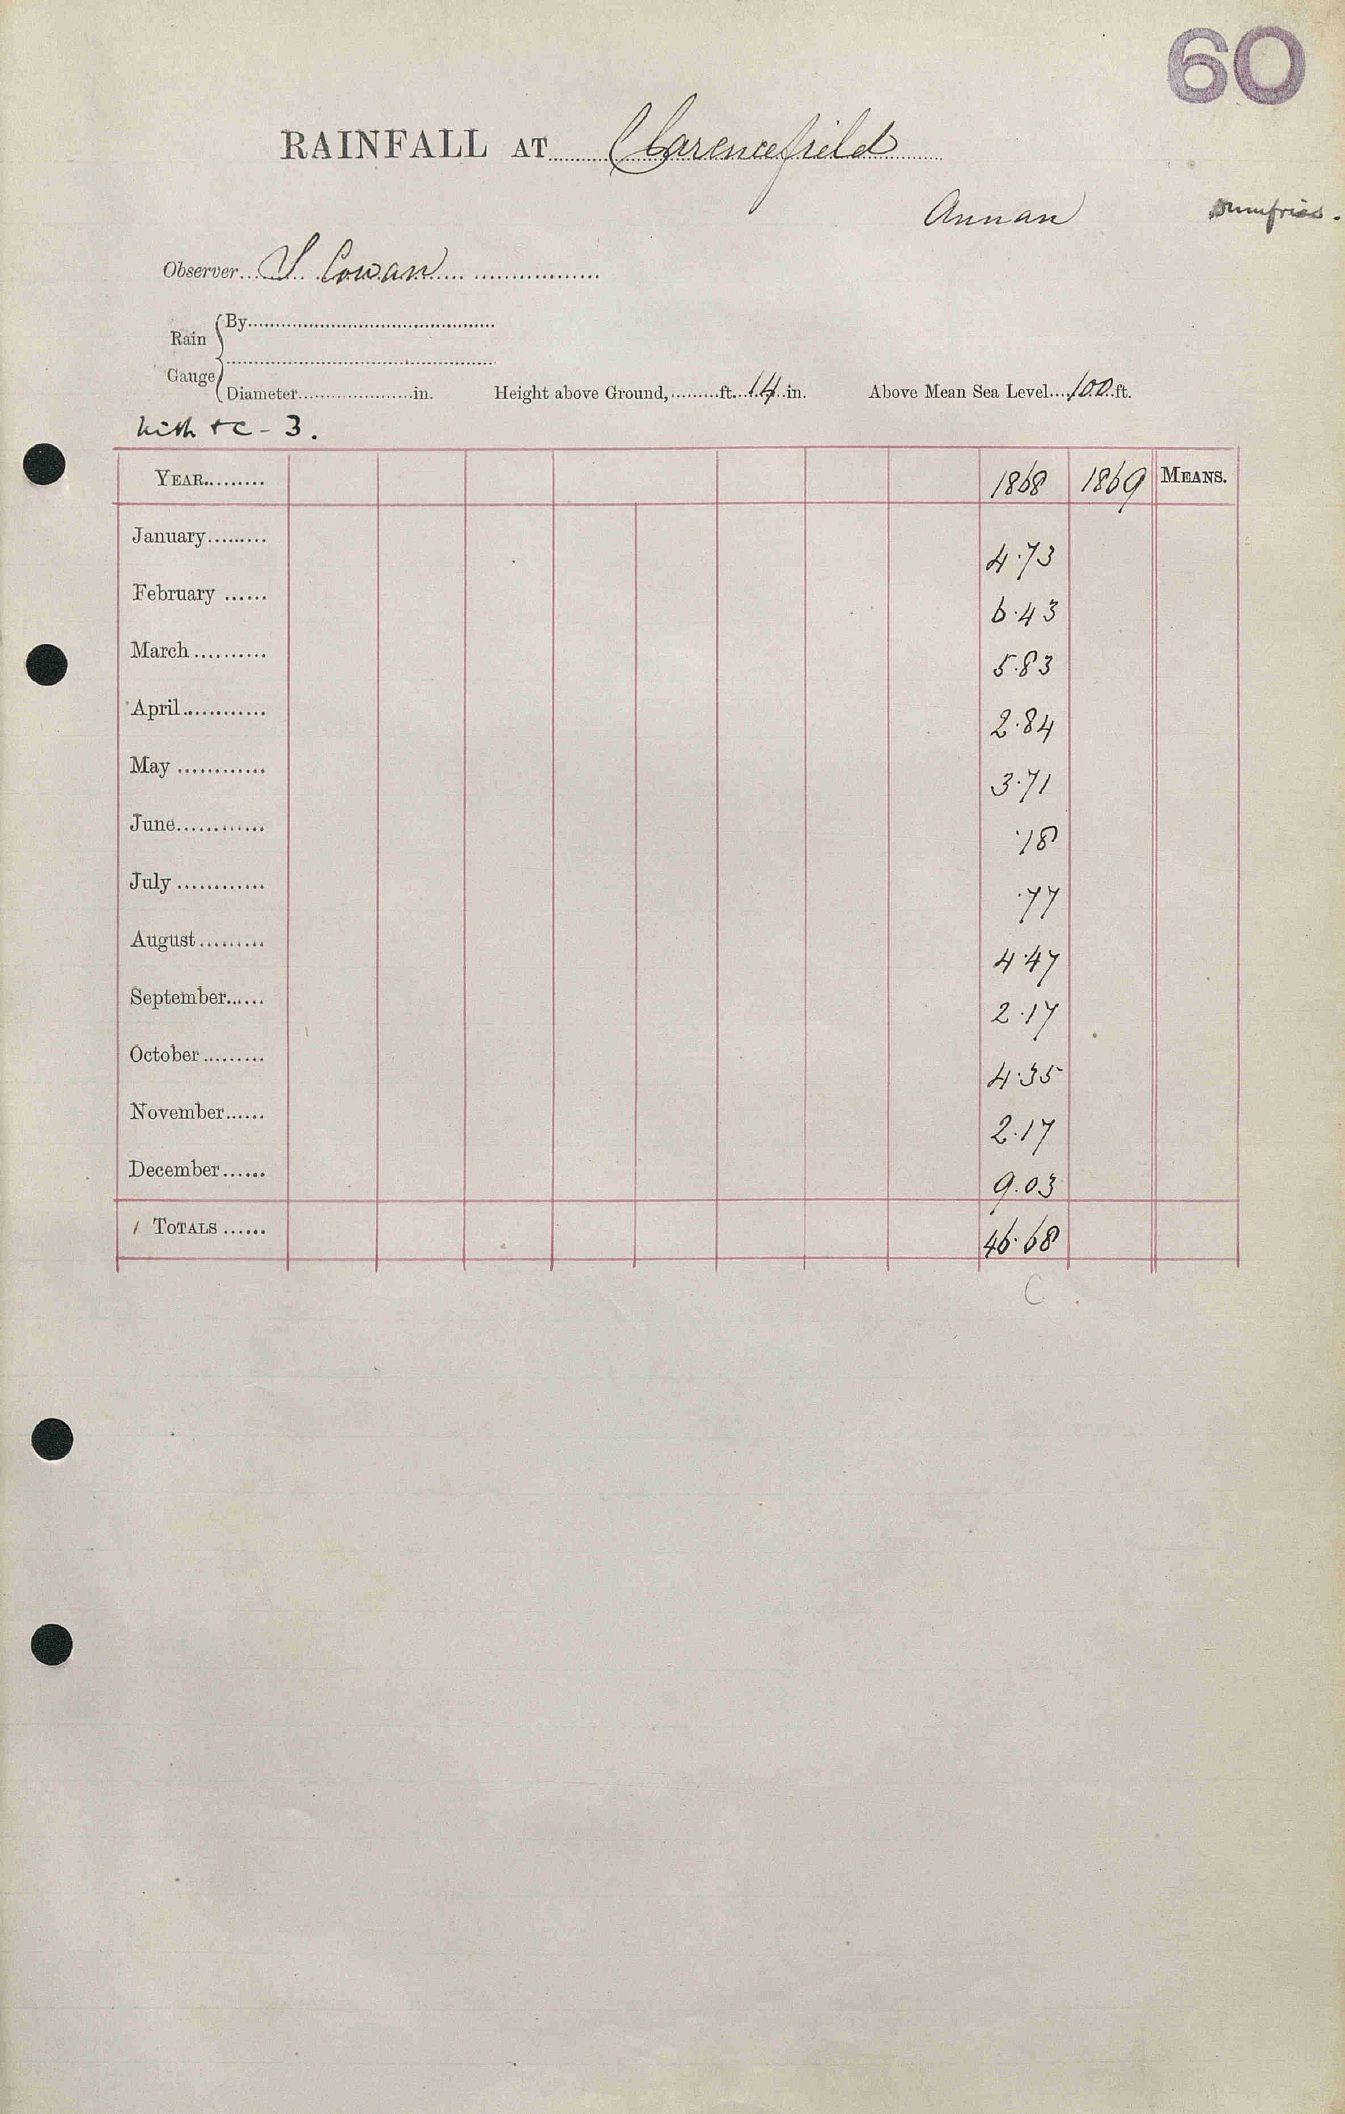 60
RAINFALL AT Clarencefield
Annan Dumfries.
Observer S Cowan
By
Rain
Gauge
Diameter in. Height above Ground, ft. 14 in. Above Mean Sea Level 100 ft.
- 3.
YEAR 1868 1869 MEANS.
January 4.73
February 6.43
March 5.83
April 2.84
May 3.71
June .18
July .77
August 4.47
September 2.17
October 4.35
November 2.17
December 9.03
TOTALS 46.68
C